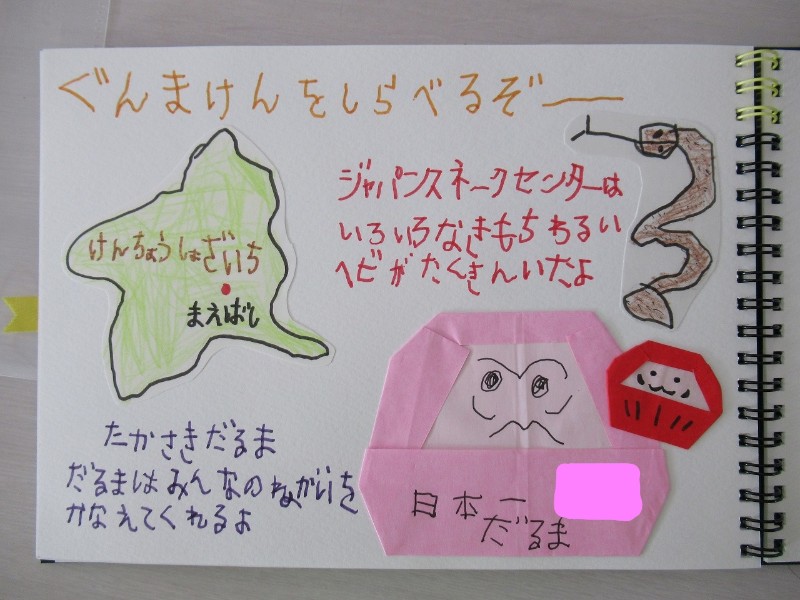 ぐんまけんをしらべるぞー
ジャパンスネークセンターは
いろいろなきもちわるい
ヘビがたくさんいたよ
けんちょうしょざいち
まえばし
たかさきだるま
だるまはみんなのねがいを
かなえてくれるよ
日本一
だるま